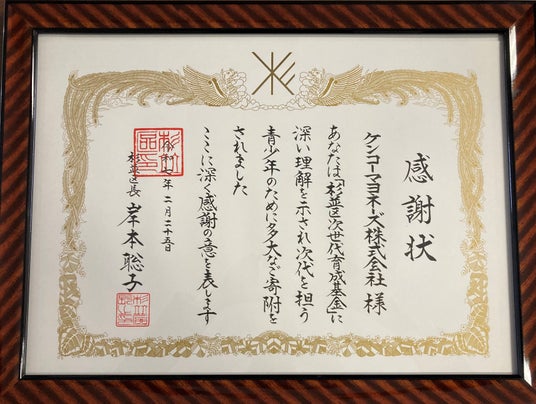 感謝状
ケンコーマヨネーズ株式会社 様
あなたは「杉並区次世代育成基金」に
深い理解を示され次代を担う
青少年のために多大なご寄附を
されました
ここに深く感謝の意を表します
令和七年二月二十五日
杉並区長 岸本聡子